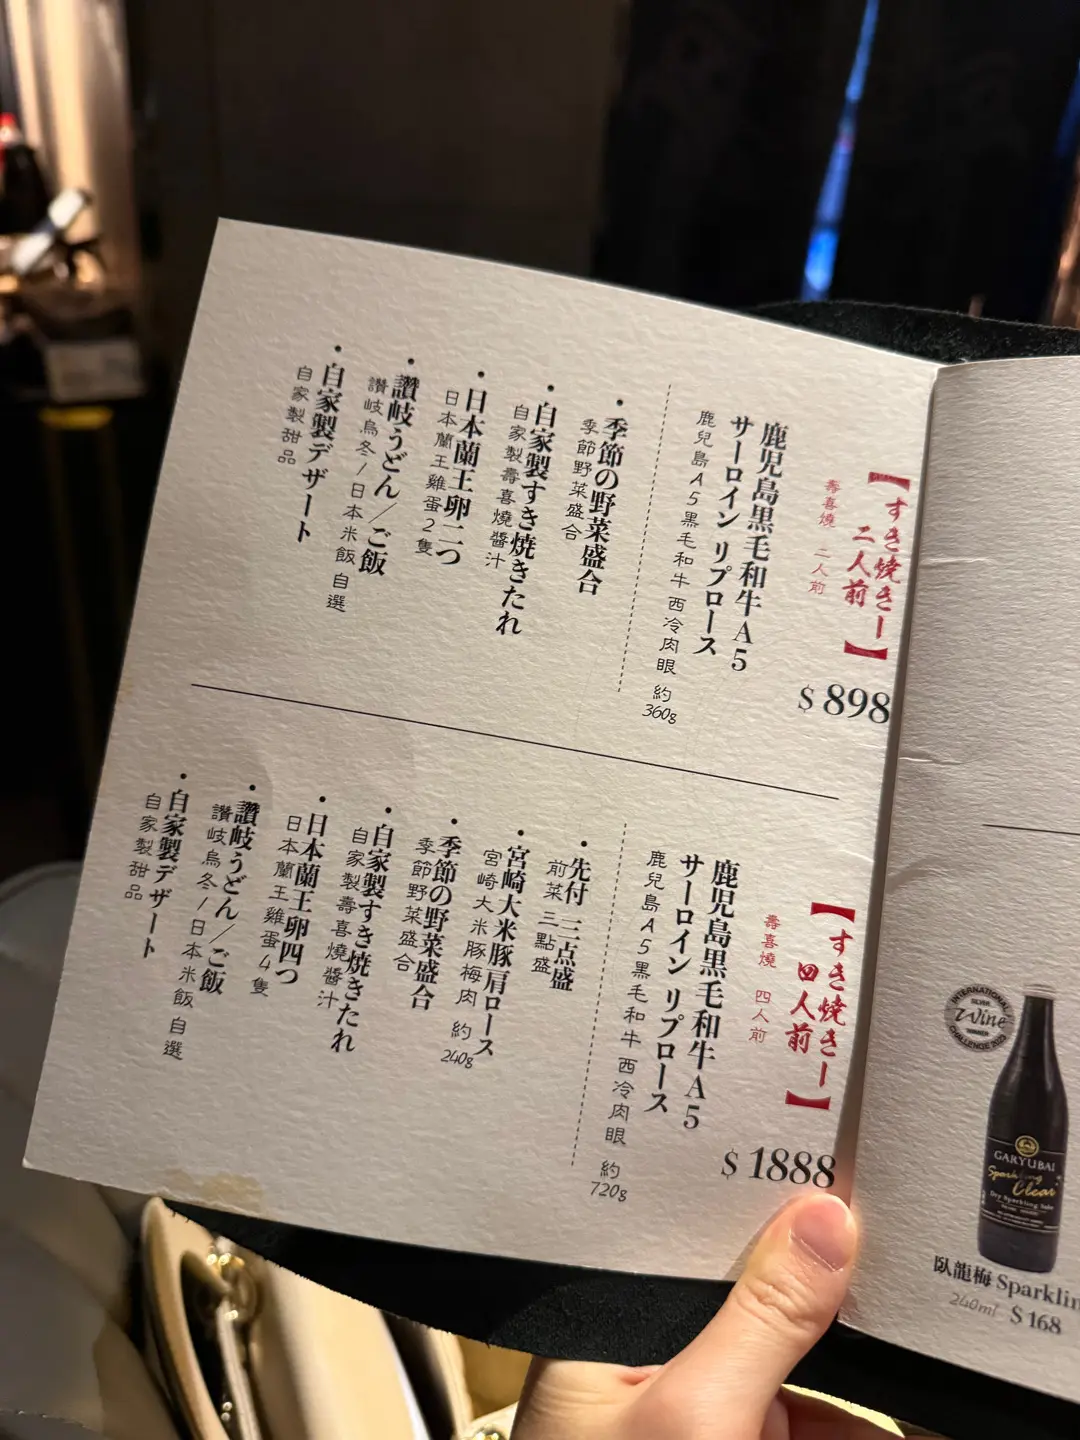 【すき焼き一
二人前】
壽喜燒 二人前
$898
鹿児島黒毛和牛A5
サーロイン リブロース
鹿兒島A5黑毛和牛 西冷肉眼 約360g
・季節の野菜盛合
季節野菜盛合
・自家製すき焼きたれ
自家製壽喜燒醬汁
・日本蘭王卵二つ
日本蘭王雞蛋2隻
・讃岐うどん/ご飯
讚岐烏冬/日本米飯 自選
・自家製デザート
自家製甜品
【すき焼き一
四人前】
壽喜燒 四人前
$1888
鹿児島黒毛和牛A5
サーロイン リブロース
鹿兒島A5黑毛和牛 西冷肉眼 約720g
・先付 三点盛
前菜 三點盛
・宮崎大米豚肩ロース
宮崎大米豚梅肉 約240g
・季節の野菜盛合
季節野菜盛合
・自家製すき焼きたれ
自家製壽喜燒醬汁
・日本蘭王卵四つ
日本蘭王雞蛋4隻
・讃岐うどん/ご飯
讚岐烏冬/日本米飯 自選
・自家製デザート
自家製甜品
INTERNATIONAL
SILVER
Wine
WINNER
CHALLENGE 2023
GARYUBAI
Sparkling
Clear
Dry Sparkling Sake
臥龍梅 Sparklin
240ml $168